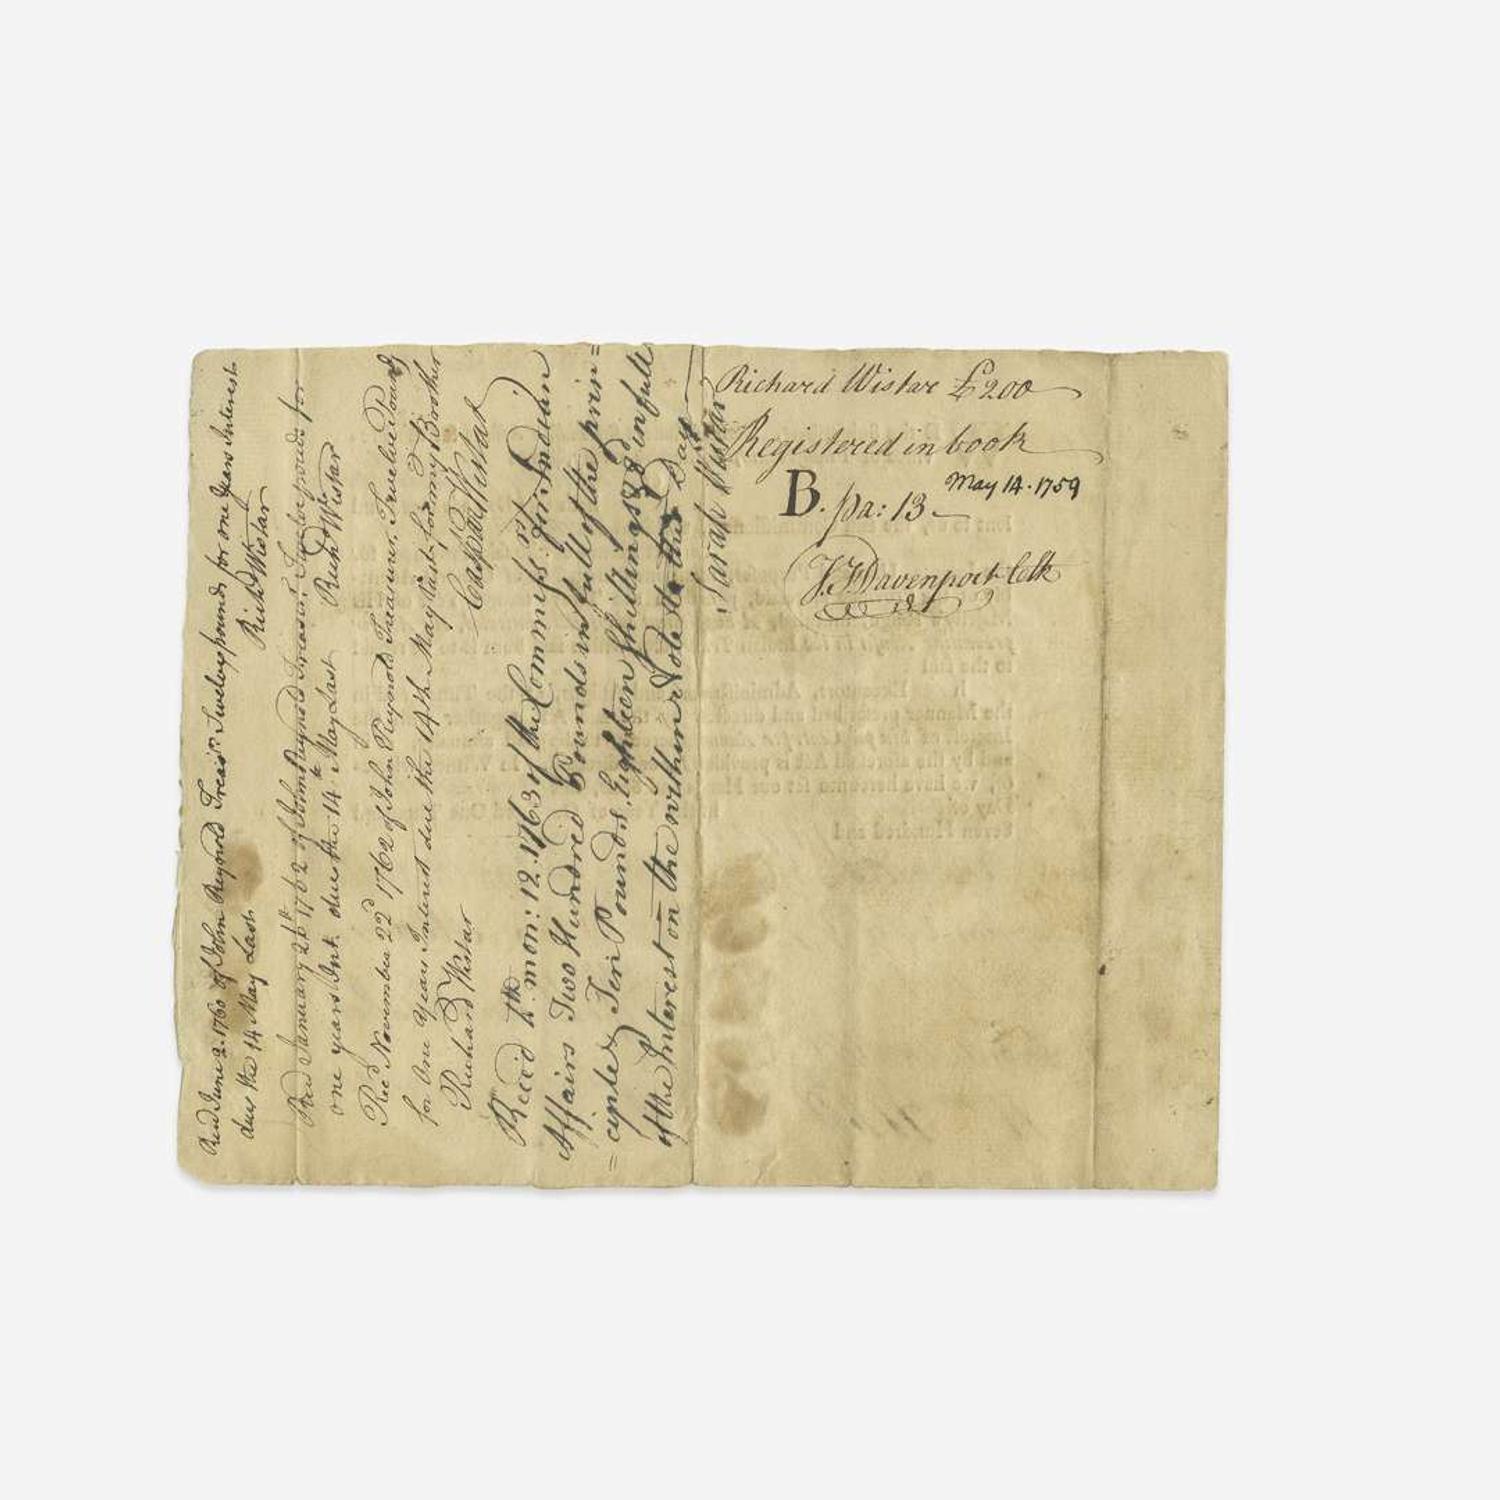 Richard Wistar £200
Registered in book
B. pa: 13 — May 14. 1759
J. F. Davenport Clk
Recd June 2. 1760 of John Reynold Treasr. Twelve pounds for one years Interest
due the 14 May Last
Richd Wistar
Recd January 26th 1762 of John Reynold Treasur. Twelve pounds for
one years Int. due the 14th May Last
Richd Wistar
Recd November 22d 1762 of John Reynold Treasurer, Twelve Pounds
for One Years Interest due the 14th May Past for my Brother
Richard Wistar Caspar Wistar
Receid 4th mon: 12. 1763 of the Commissrs. for Indian
Affairs Two Hundred Pounds in full of the prin=
=ciple & Ten Pounds, Eighteen Shillings & 8d in full
of the Interest on the within Note to this Day
Sarah Wistar
to the said
the Manner prescribed and
and by the aforesaid Act is provided
of, we have hereunto set our
Day of
seven Hundred and